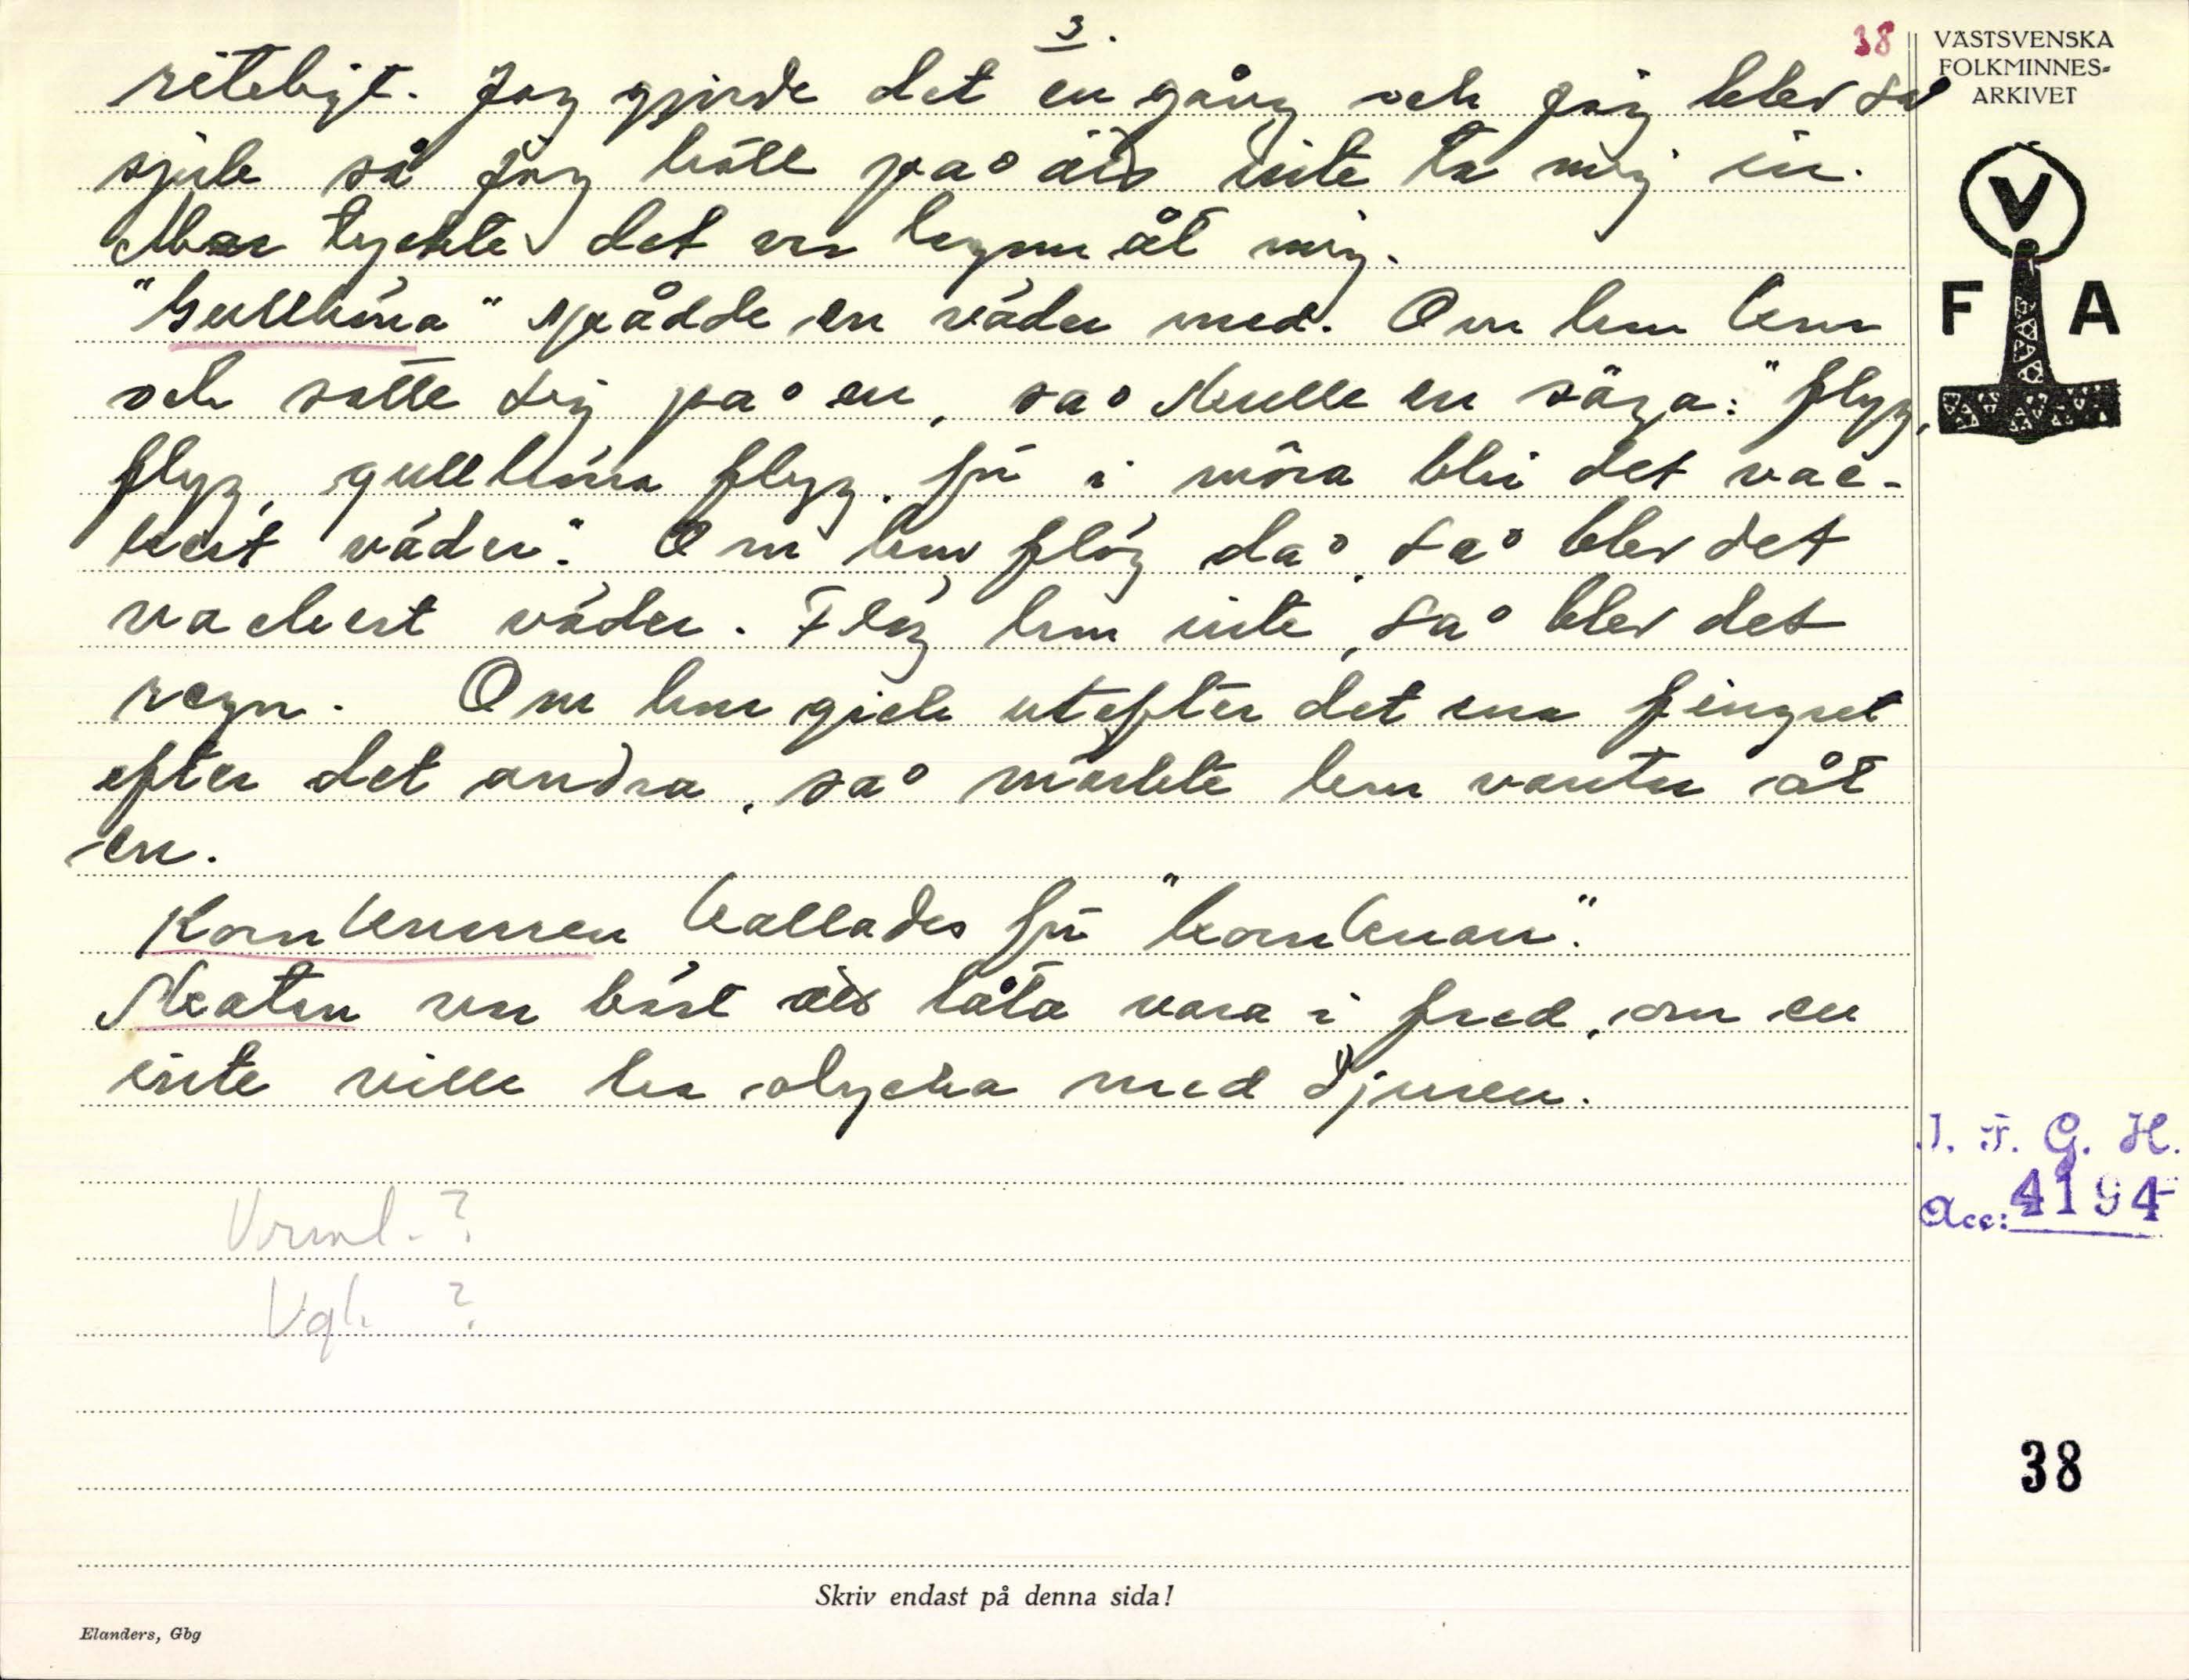 3.
38
riteligt. Jag gjorde det en gång och jag blev så
sjuk så jag höll på att inte ta mig in.
Mor tyckte det va lagom åt mig.
"Gullhöna" spådde en väder med. Om hon kom
och satte sig på en, så skulle en säga: "flyg,
flyg, gullhöna flyg, för i möra bli det vac-
kert väder". Om hon flög då, så blev det
vackert väder. Flög hon inte, så blev det
regn. Om hon gick utefter det ena fingret
efter det andra, så märkte hon vantar åt
en.
Kornknarren kallades för "kornknarr".
Skatan va bäst att låta vara i fred, om en
inte ville ha olycka med djuren.
Vrml. ?
Vgl. ?
VÄSTSVENSKA
FOLKMINNES-
ARKIVET
V
F A
I. F. G. H.
Acc: 4194
38
Skriv endast på denna sida!
Elanders, Gbg